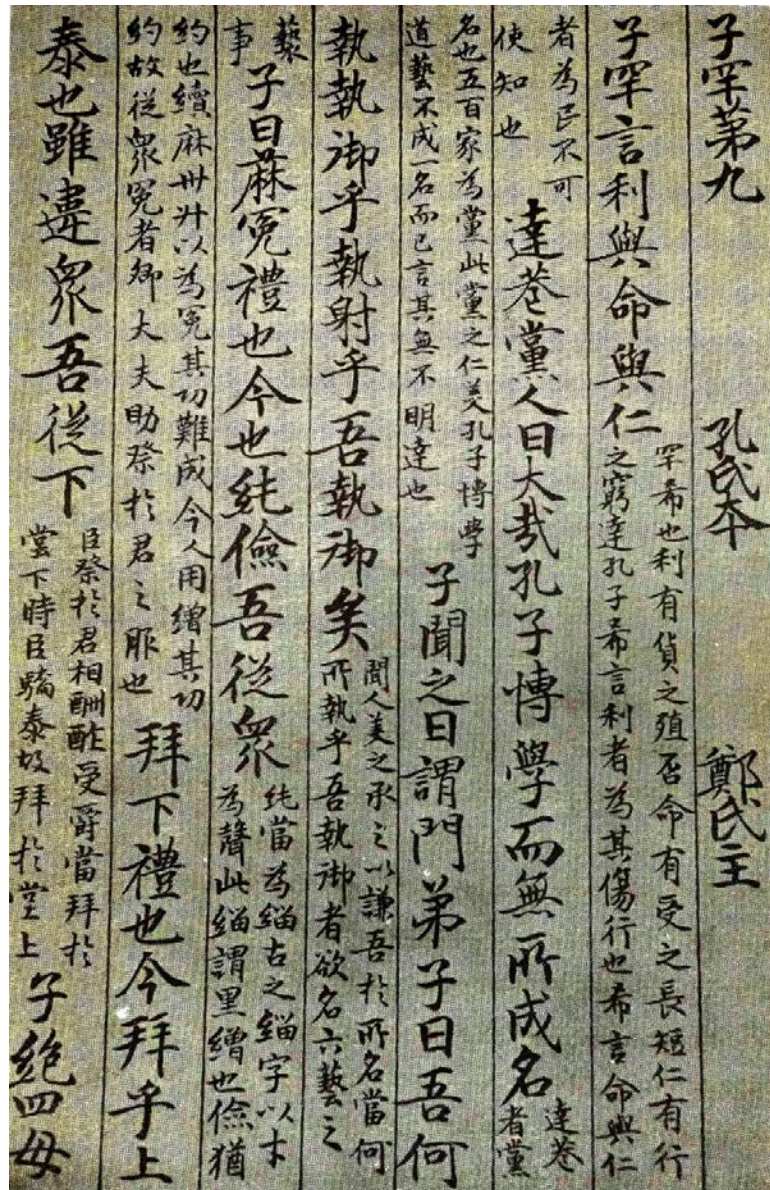 子罕苐九 孔氏本 鄭氏主
子罕言利與命與仁 罕希也利有貨之殖否命有受之長短仁有行
之窮達孔子希言利者為其傷行也希言命與仁
者為民不可
使知也 達巷黨人曰大哉孔子博學而無所成名 達巷
者黨
名也五百家為黨此黨之仁美孔子博學
道藝不成一名而已言其無不明達也 子聞之曰謂門弟子曰吾何
執執御乎執射乎吾執御矣 聞人美之承之以謙吾於所名當何
所執乎吾執御者欲名六藝之
藝
事 子曰麻冕禮也今也純儉吾從眾 純當為緇古之緇字以才
為聲此緇謂黑繒也儉猶
約也績麻卅升以為冕其功難成今人用繒其功
約故從眾冕者卿大夫助祭於君之服也 拜下禮也今拜乎上
泰也雖違眾吾從下 臣祭於君相酬酢受爵當拜於
堂下時臣驕泰故拜於堂上 子絕四毋